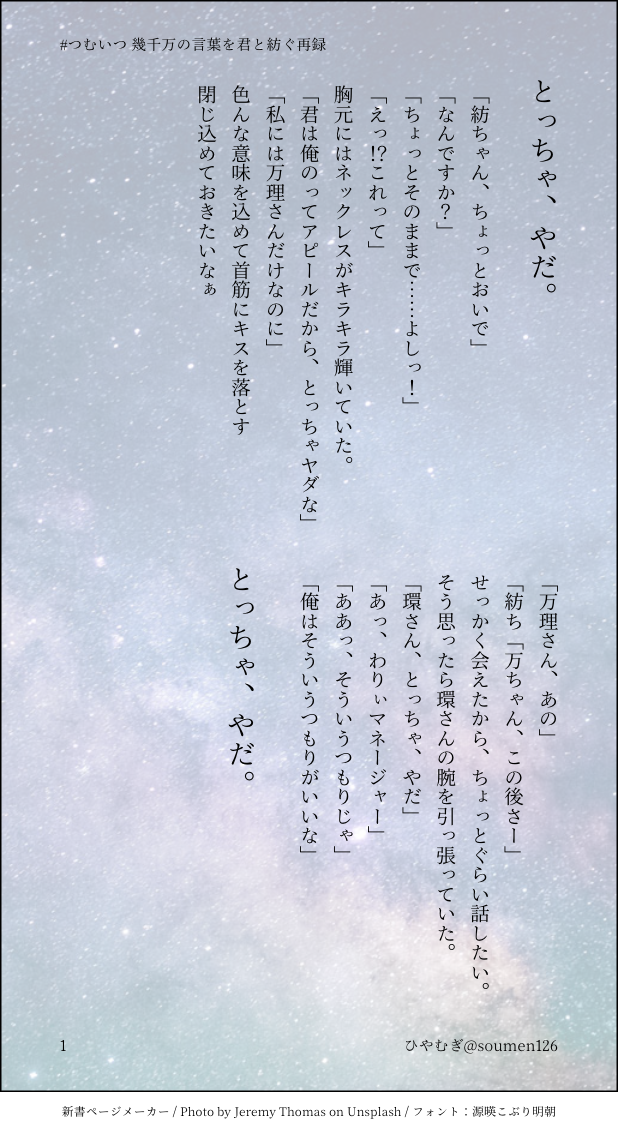 #つむいつ 幾千万の言葉を君と紡ぐ再録
とっちゃ、やだ。
「紡ちゃん、ちょっとおいで」
「なんですか？」
「ちょっとそのままで……よしっ！」
「えっ!?これって」
胸元にはネックレスがキラキラ輝いていた。
「君は俺のってアピールだから、とっちゃヤダな」
「私には万理さんだけなのに」
色んな意味を込めて首筋にキスを落とす
閉じ込めておきたいなぁ
「万理さん、あの」
「紡ち「万ちゃん、この後さー」
せっかく会えたから、ちょっとぐらい話したい。
そう思ったら環さんの腕を引っ張っていた。
「環さん、とっちゃ、やだ」
「あっ、わりぃマネージャー」
「ああっ、そういうつもりじゃ」
「俺はそういうつもりがいいな」
とっちゃ、やだ。
1
ひやむぎ@soumen126
新書ページメーカー / Photo by Jeremy Thomas on Unsplash / フォント：源暎こぶり明朝